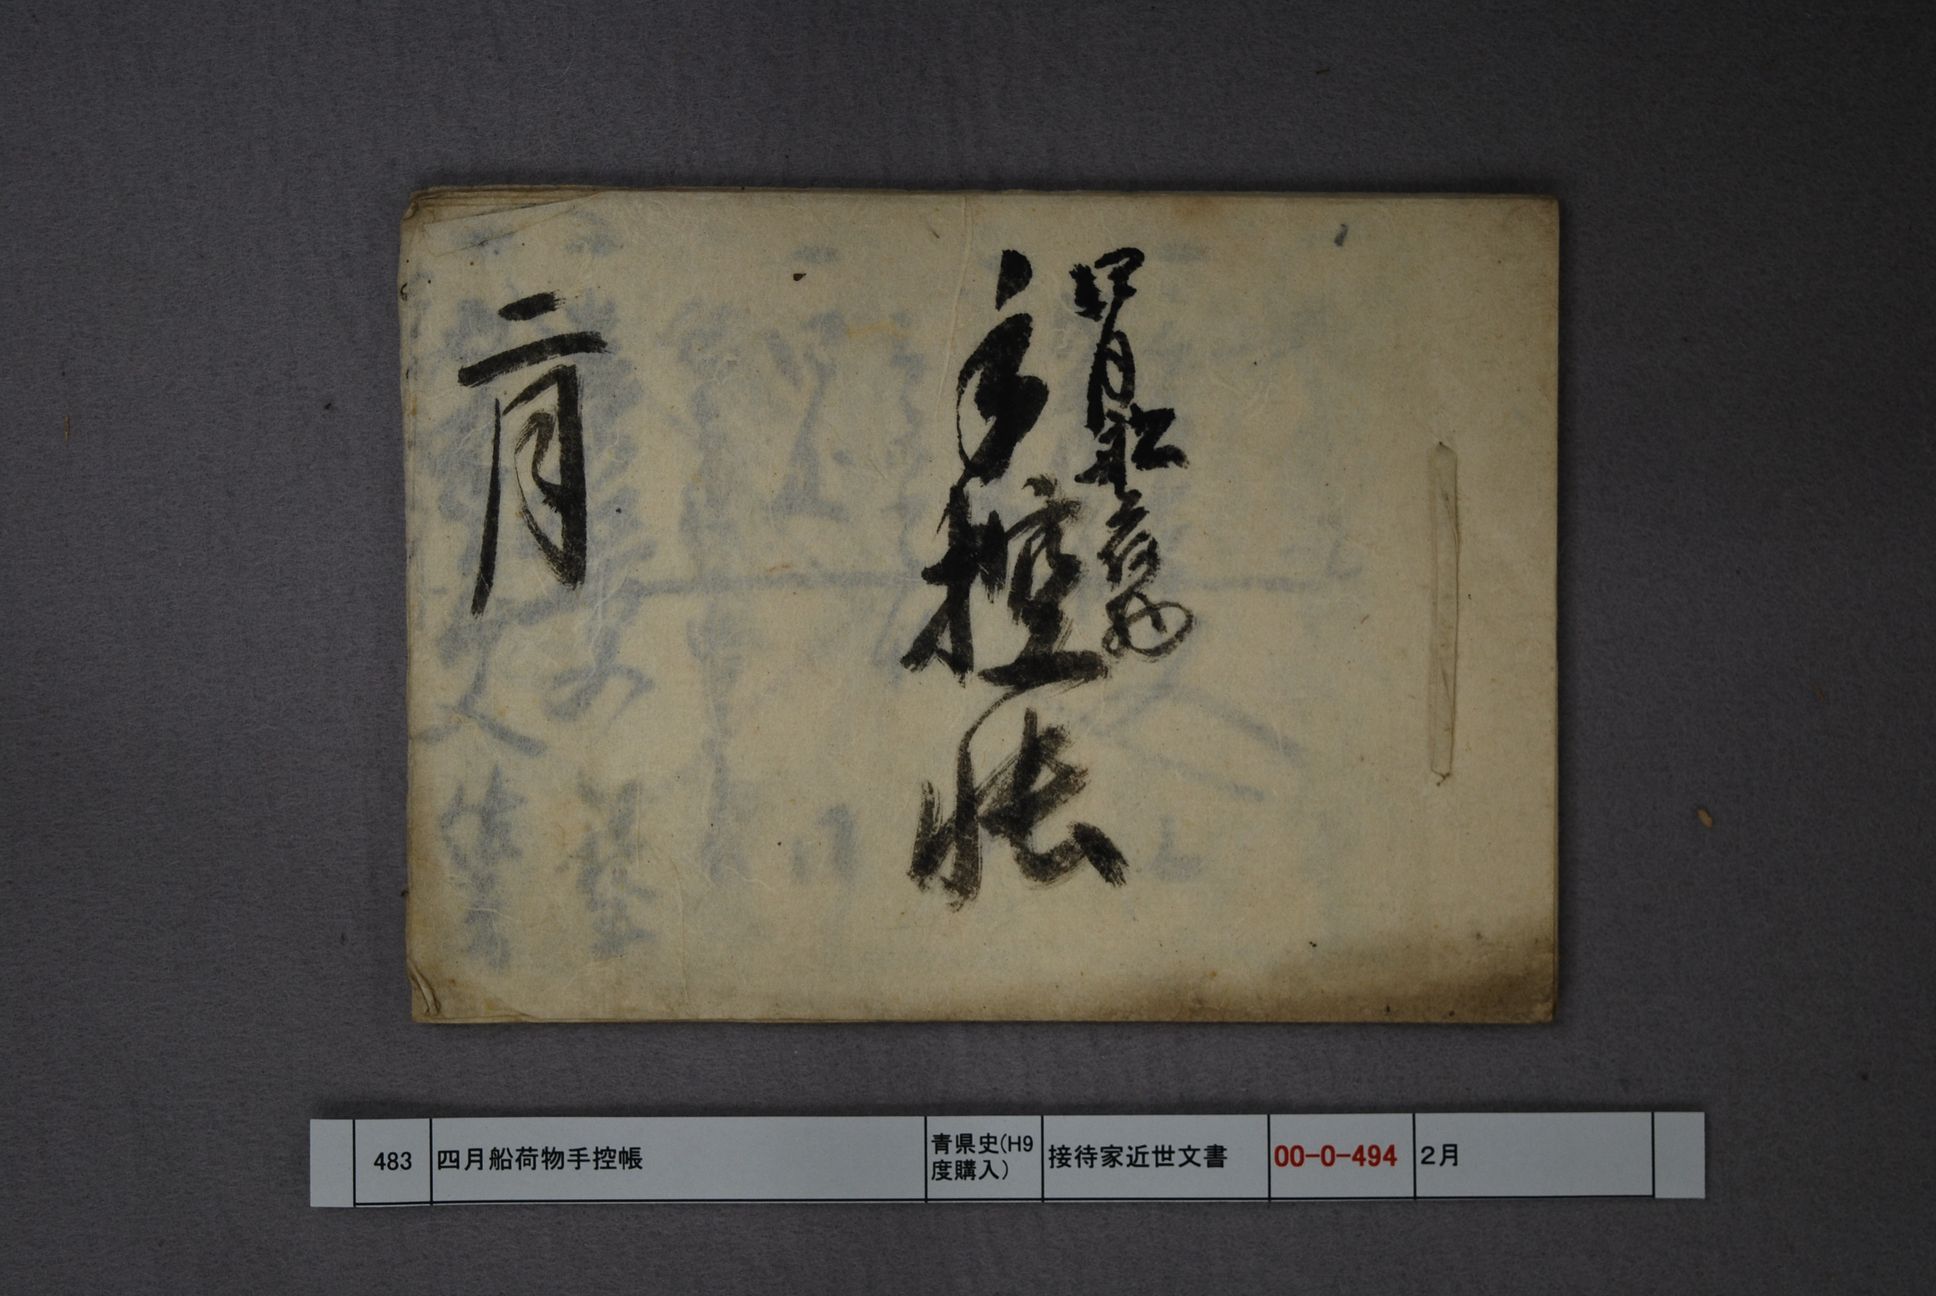 四月船荷物
手控帳
二月
483 四月船荷物手控帳 青県史(H9度購入) 接待家近世文書 00-0-494 2月